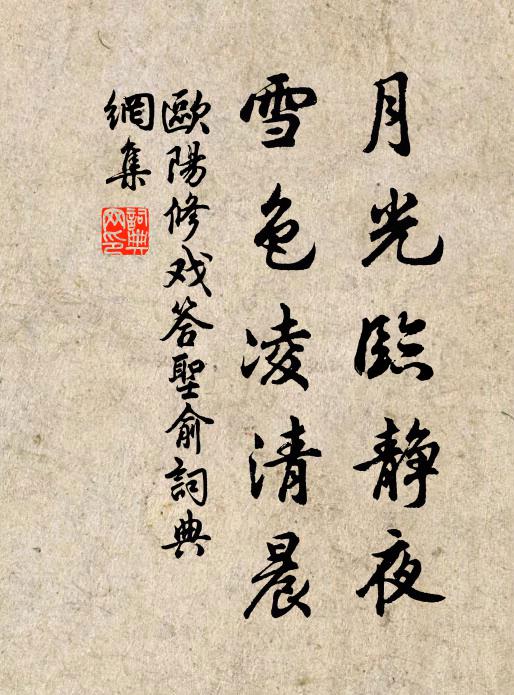 月光臨静夜
雪色凌清晨
歐陽修戏答聖俞詞典
網集
詞典网印